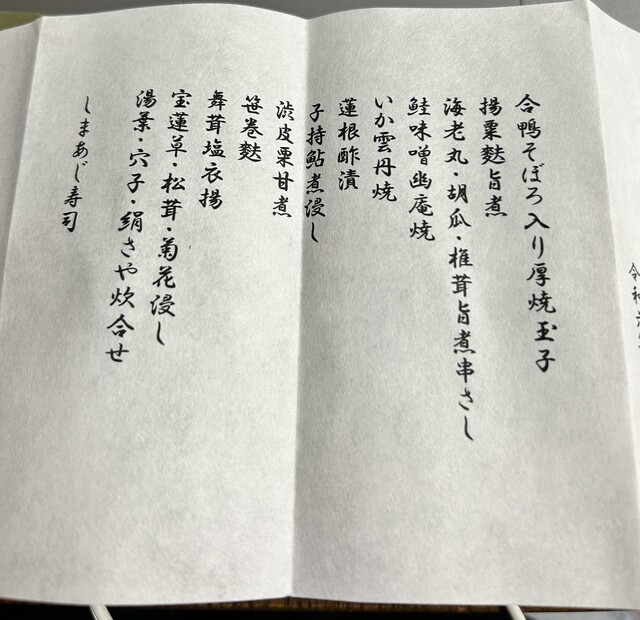 合鴨そぼろ入り厚焼玉子
揚粟麩旨煮
海老丸・胡瓜・椎茸旨煮串さし
鮭味噌幽庵焼
いか雲丹焼
蓮根酢漬
子持鮎煮浸し
渋皮栗甘煮
笹巻麩
舞茸塩衣揚
宝蓮草・松茸・菊花浸し
湯葉・穴子・絹さや炊合せ
しまあじ寿司